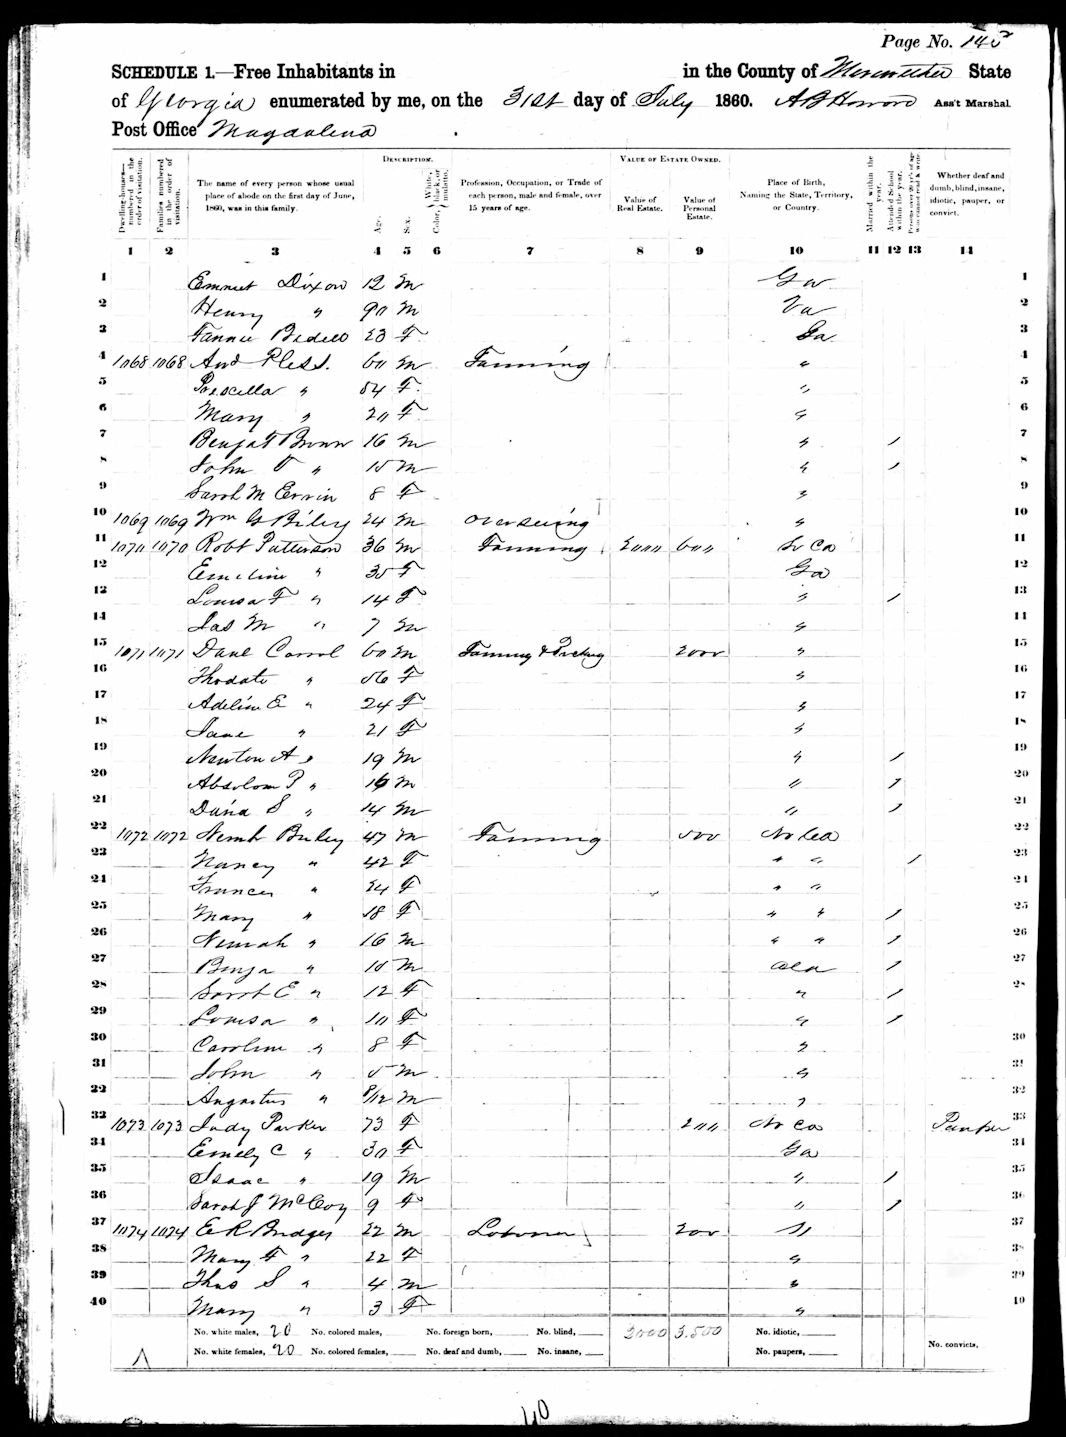 Page No. 145
SCHEDULE 1.—Free Inhabitants in in the County of Meriwether State
of Georgia enumerated by me, on the 31st day of July 1860. A B Howard Ass't Marshal.
Post Office Magdalena
DESCRIPTION. VALUE OF ESTATE OWNED.
Dwelling-houses—numbered in the order of visitation. Families numbered in the order of visitation. The name of every person whose usual place of abode on the first day of June, 1860, was in this family. Age. Sex. Color, White, black, or mulatto. Profession, Occupation, or Trade of each person, male and female, over 15 years of age. Value of Real Estate. Value of Personal Estate. Place of Birth, Naming the State, Territory, or Country. Married within the year. Attended School within the year. Persons over 20 y'rs of age who cannot read & write. Whether deaf and dumb, blind, insane, idiotic, pauper, or convict.
1 2 3 4 5 6 7 8 9 10 11 12 13 14
1 Emmet Dixon 12 M Ga 1
2 Henry " 90 M Va 2
3 Fannie Bedell 23 F Ga 3
4 1068 1068 And Pless. 60 M Farming " 4
5 Prescella " 54 F " 5
6 Mary " 20 F " 6
7 Benja F Brown 16 M " / 7
8 John T " 15 M " / 8
9 Sarah M Ervin 8 F " 9
10 1069 1069 Wm G 24 M overseeing " 10
11 1070 1070 Robt Patterson 36 M Farming 2000 600 So Ca 11
12 Emeline " 35 F Ga 12
13 Louisa F " 14 F " / 13
14 Jas M " 7 M " 14
15 1071 1071 Danl Carrol 60 M Farming & 2000 " 15
16 Thodate " 56 F " 16
17 Adeline E " 24 F " 17
18 Jane " 21 F " 18
19 Newton A " 19 M " / 19
20 Absolom P " 16 M " / 20
21 David S " 14 M " / 21
22 1072 1072 47 M Farming 500 No Ca 22
23 Nancy " 42 F " " / 23
24 Frances " 24 F " " 24
25 Mary " 18 F " " / 25
26 Nemiah " 16 M " " / 26
27 Benja " 15 M Ala / 27
28 Sarah E " 12 F " / 28
29 Louisa " 10 F " /
30 Caroline " 8 F " 30
31 John " 5 M " 31
32 Augustus " 8/12 M " 32
33 1073 1073 Judy Parker 73 F 200 No Ca Pauper 33
34 Emely C " 30 F Ga 34
35 Isaac " 19 M " / 35
36 Sarah J McCoy 9 F " / 36
37 1074 1074 E R Bridges 22 M Laborer 200 " 37
38 Mary F " 22 F " 38
39 Thos S " 4 M " 39
40 Mary " 3 F " 40
No. white males, 20 No. colored males, No. foreign born, No. blind, 2000 3.500 No. idiotic,
No. white females, 20 No. colored females, No. deaf and dumb, No. insane, No. paupers, No. convicts,
40